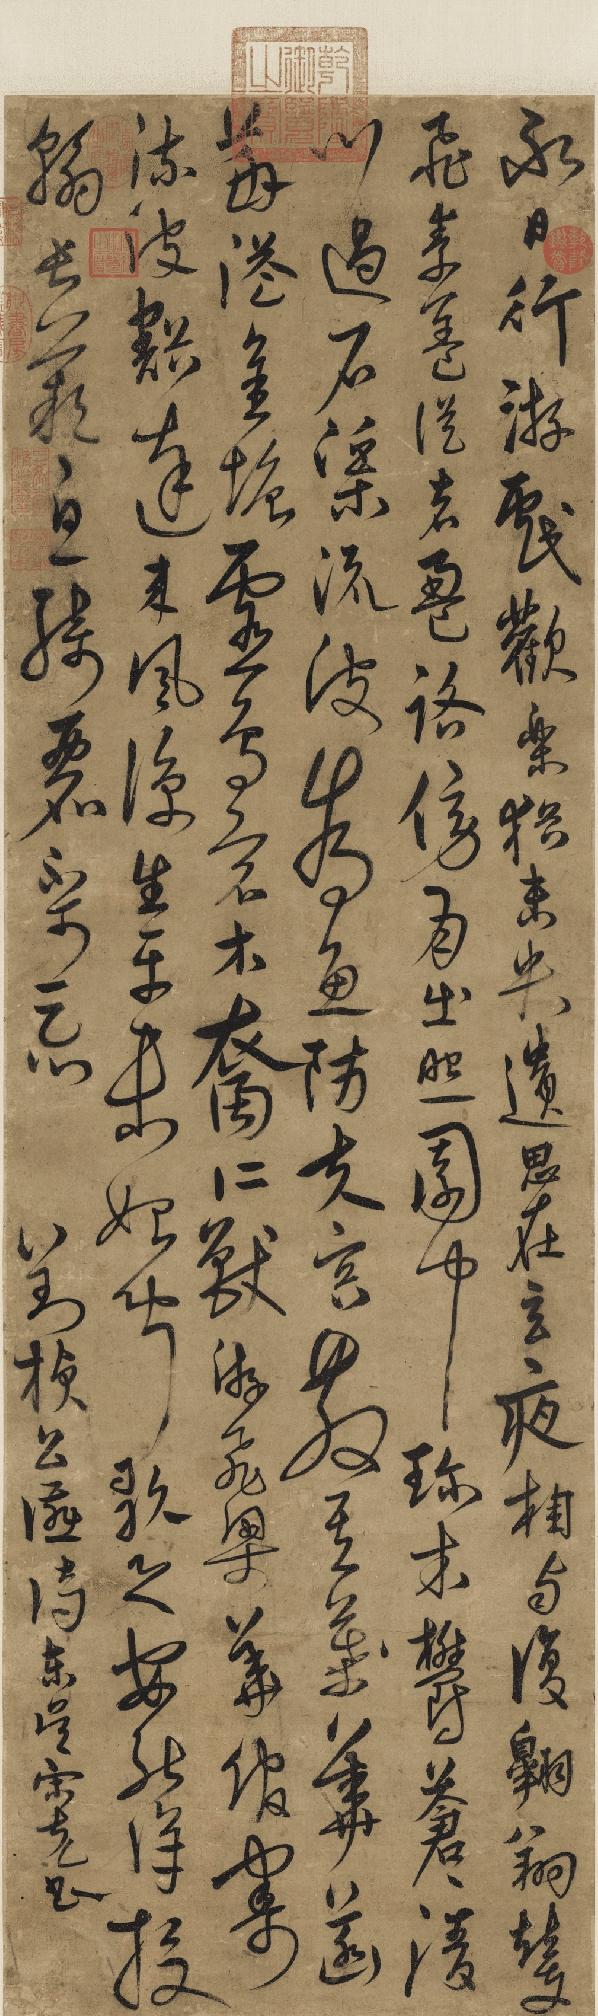 永日行游戲歡樂猶未央遺思在玄夜相與復翱翔輦車
飛素蓋從者盈路傍月出照園中珍木鬱蒼〻清
川過石渠流波為魚防夫容散其華菡
萏溢金塘靈鳥宿水裔仁獸游飛梁華館寄
流波豁達來風涼生平未始聞歌之安能詳投
翰長歎息綺麗不可忘 劉楨公讌詩東吳宋克書
乾隆御覽之寶